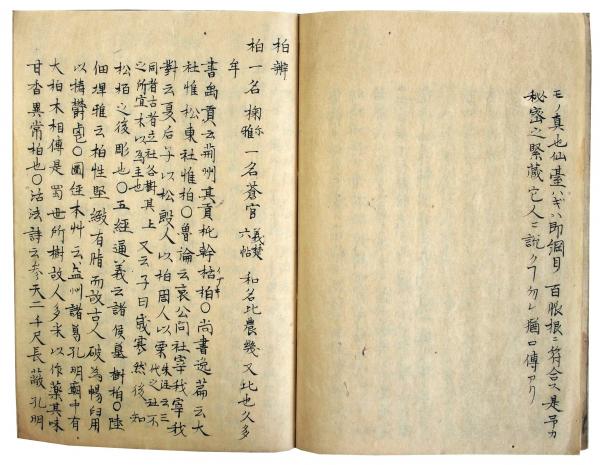 モノ真也仙臺ハギハ即綱目 百脈根ニ符合ス是予カ
秘密之緊蔵它人ニ説クヿ勿レ猶口傳アリ
柏辨
柏 一名 椈 爾雅 一名蒼官 義楚六帖 和名比農幾 又比也久多
牟
書禹貢云荊州其貢杶幹栝柏〇尚書逸篇云大
社惟松東社惟柏〇魯論云哀公問社宰我宰我
對云夏后子以松殷人以柏周人以栗 朱注云三代之社不
同者古者立社各樹其
之所宜木以為主也 上 又云子曰歳寒然後知
松柏之後彫也〇五經通義云諸侯墓樹柏〇陸
佃埤雅云柏性堅緻有脂而故古人破為暢臼用
以擣鬱鬯〇圖經本艸云益州諸葛孔明廟中有
大柏木相傳是蜀世所樹故人多采以作藥其味
甘香異常柏也〇沽法詩云参天二千尺長蔽孔明